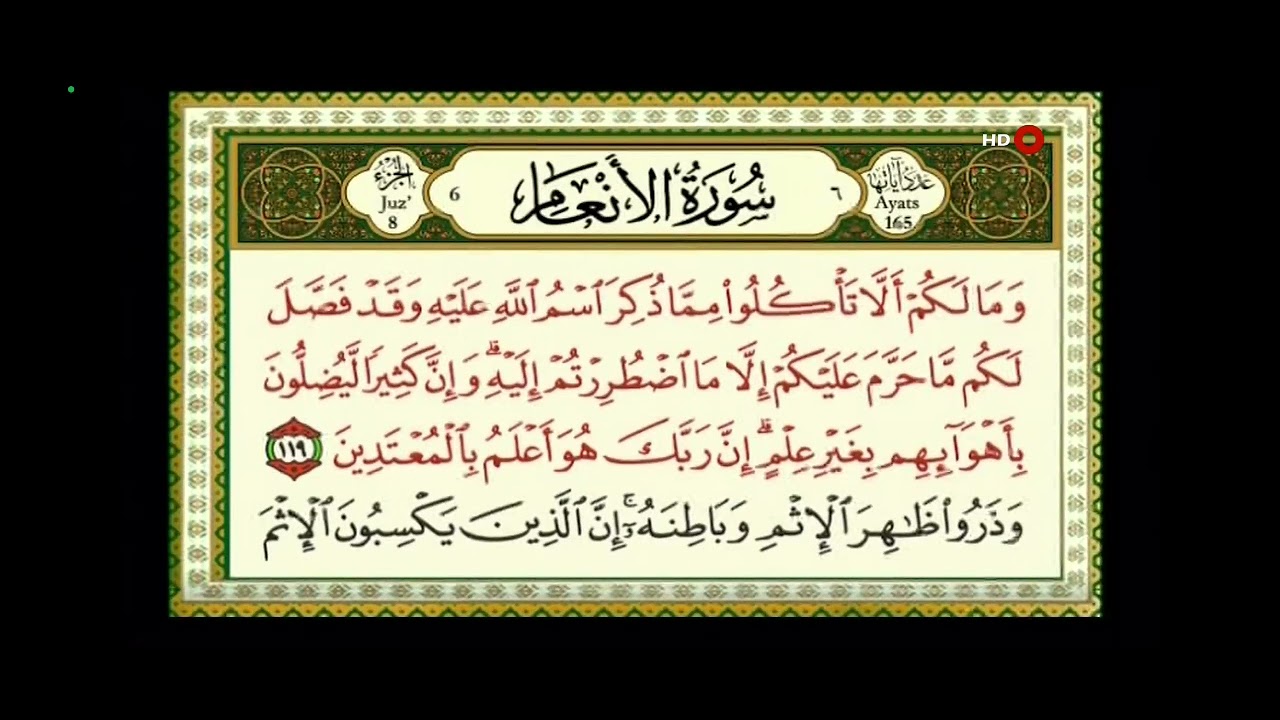 HD
عدد آياتها
Ayats
165
٦
سُورَةُ الأَنْعَام
6
الجزء
Juz'
8
وَمَا لَكُمْ أَلَّا تَأْكُلُوا۟ مِمَّا ذُكِرَ ٱسْمُ ٱللَّهِ عَلَيْهِ وَقَدْ فَصَّلَ
لَكُم مَّا حَرَّمَ عَلَيْكُمْ إِلَّا مَا ٱضْطُرِرْتُمْ إِلَيْهِ ۗ وَإِنَّ كَثِيرًا لَّيُضِلُّونَ
بِأَهْوَآئِهِم بِغَيْرِ عِلْمٍ ۗ إِنَّ رَبَّكَ هُوَ أَعْلَمُ بِٱلْمُعْتَدِينَ ١١٩
وَذَرُوا۟ ظَـٰهِرَ ٱلْإِثْمِ وَبَاطِنَهُۥٓ ۚ إِنَّ ٱلَّذِينَ يَكْسِبُونَ ٱلْإِثْمَ